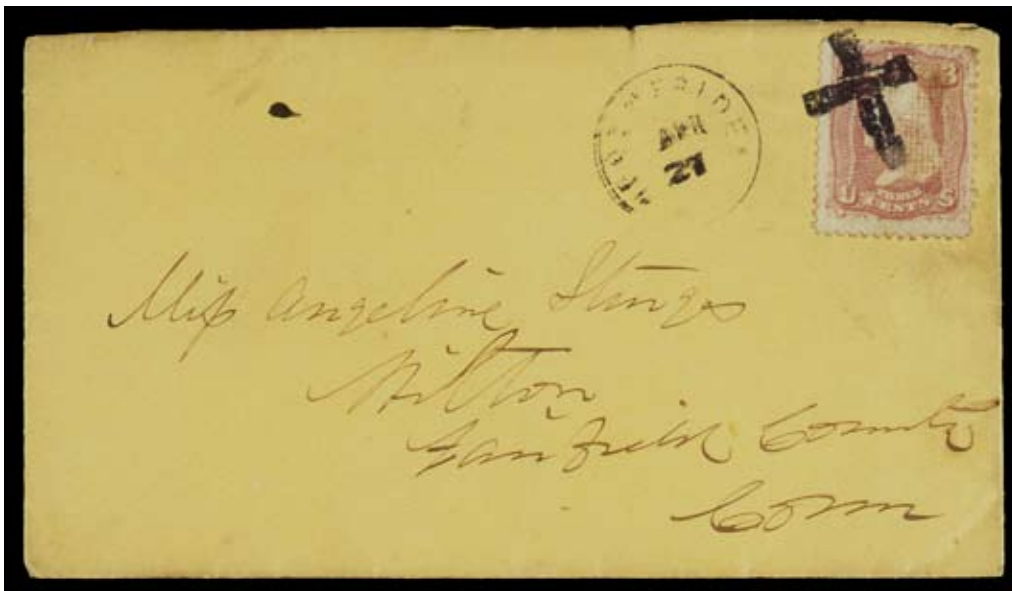 APR
27
3
U S
THREE
CENTS
Miss Angeline Sturges
Wilton
Fairfield County
Conn